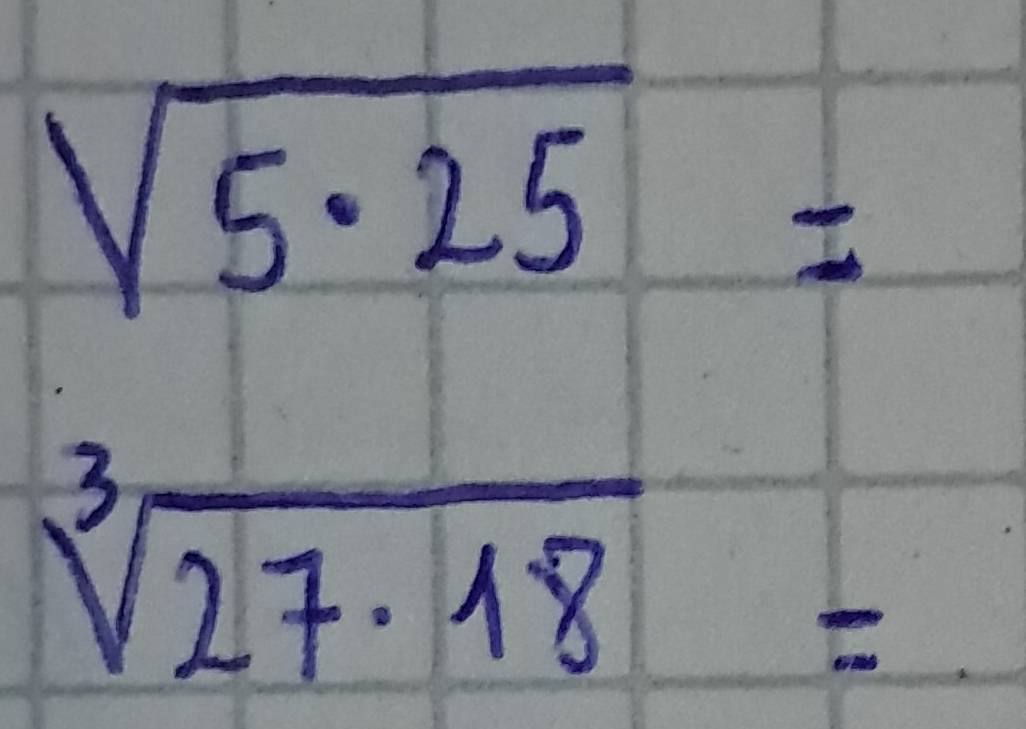 √5·25 =
³√27·18 =